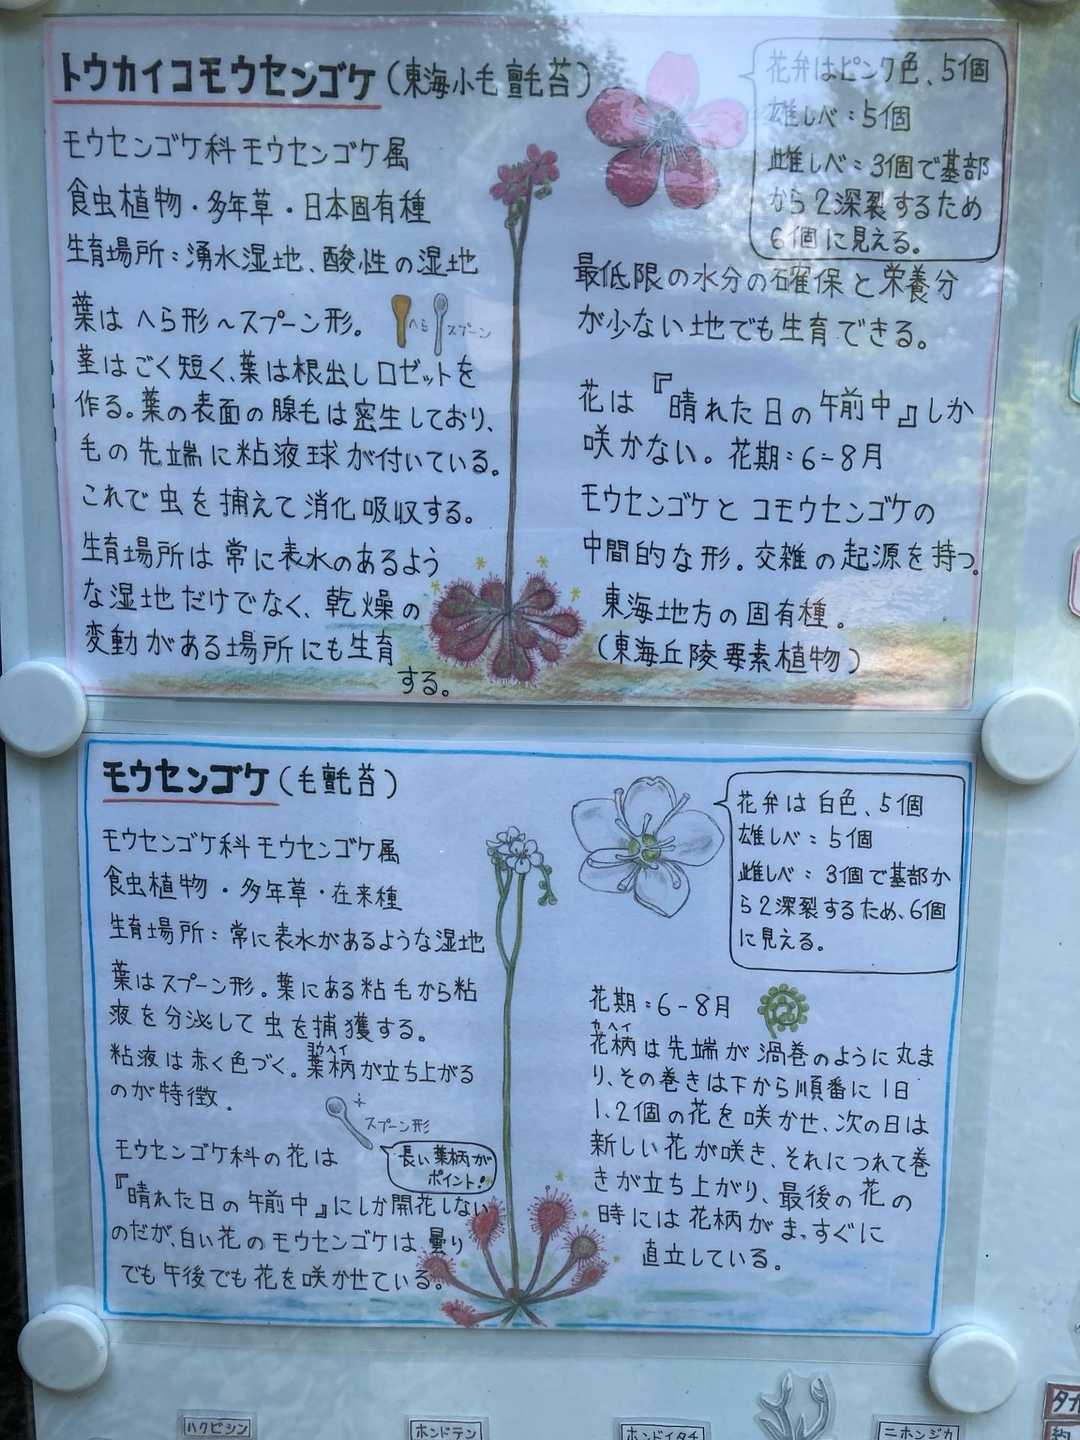 トウカイコモウセンゴケ(東海小毛氈苔)
モウセンゴケ科モウセンゴケ属
食虫植物・多年草・日本固有種
生育場所:湧水湿地、酸性の湿地
葉はへら形~スプーン形。
へら
スプーン
茎はごく短く、葉は根出しロゼットを
作る。葉の表面の腺毛は密生しており、
毛の先端に粘液球が付いている。
これで虫を捕えて消化吸収する。
生育場所は常に表水のあるよう
な湿地だけでなく、乾燥の
変動がある場所にも生育
する。
花弁はピンク色、5個
雄しべ:5個
雌しべ:3個で基部
から2深裂するため
6個に見える。
最低限の水分の確保と栄養分
が少ない地でも生育できる。
花は『晴れた日の午前中』しか
咲かない。花期:6-8月
モウセンゴケとコモウセンゴケの
中間的な形。交雑の起源を持つ。
東海地方の固有種。
(東海丘陵要素植物)
モウセンゴケ(毛氈苔)
モウセンゴケ科モウセンゴケ属
食虫植物・多年草・在来種
生育場所:常に表水があるような湿地
葉はスプーン形。葉にある粘毛から粘
液を分泌して虫を捕獲する。
粘液は赤く色づく。葉柄が立ち上がる
ヨウヘイ
のが特徴。
スプーン形
長い葉柄が
ポイント!
モウセンゴケ科の花は
『晴れた日の午前中』にしか開花しない
のだが、白い花のモウセンゴケは、曇り
でも午後でも花を咲かせている。
花弁は白色、5個
雄しべ:5個
雌しべ:3個で基部か
ら2深裂するため、6個
に見える。
花期:6-8月
カヘイ
花柄は先端が渦巻のように丸ま
り、その巻きは下から順番に1日
1、2個の花を咲かせ、次の日は
新しい花が咲き、それにつれて巻
きが立ち上がり、最後の花の
時には花柄がまっすぐに
直立している。
ハクビシン
ホンドテン
ホンドイタチ
ニホンジカ